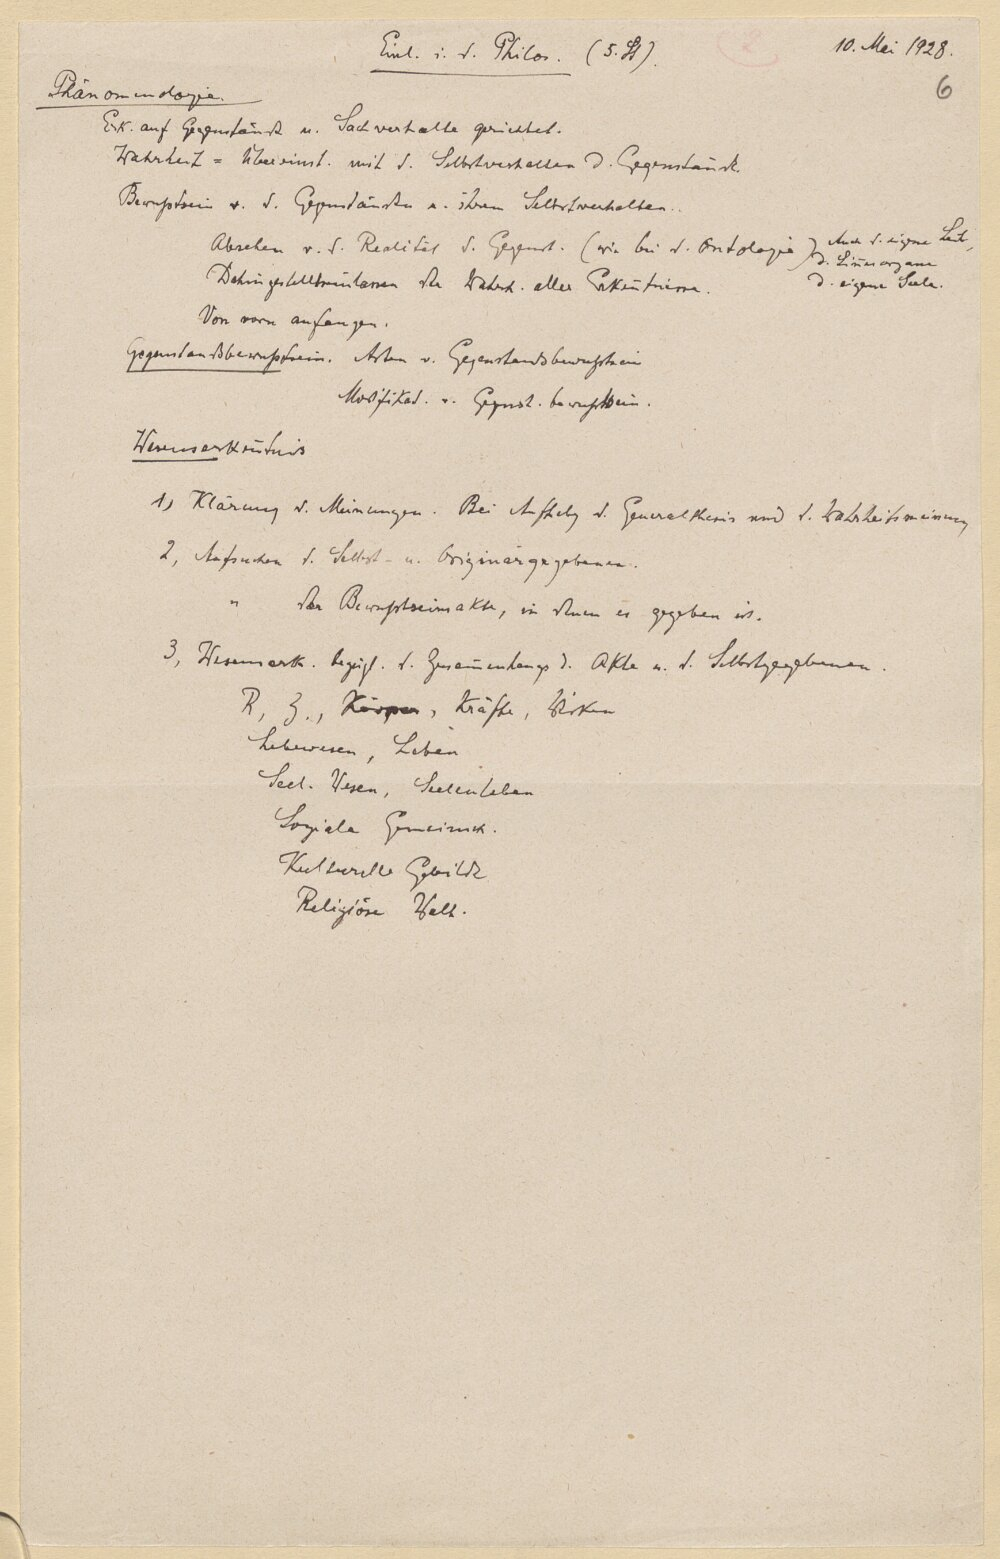 Einl. i. d. Philos. (5. St).
2
10. Mai 1928.
6
Phänomenologie.
Erk. auf Gegenstände u. Sachverhalte gerichtet.
Wahrheit = Übereinst. mit d. Selbstverhalten d. Gegenstände.
Bewußtsein v. d. Gegenständen u. ihrem Selbstverhalten.
Absehen v. d. Realität d. Gegenst. (wie bei d. Ontologie)
Auch d. eigene Leib,
d. Sinnesorgane
d. eigene Seele.
Dahingestelltseinlassen der Wahrh. aller Erkenntnisse.
Von vorn anfangen.
Gegenstandsbewußtsein. Arten v. Gegenstandsbewußtsein
Modifikat. v. Gegenst. bewußtsein.
Wesenserkenntnis
1, Klärung d. Meinungen. Bei Aufhebg d. Generalthesis und d. Wahrheitsmeinung
2, Aufsuchen d. Selbst- u. Originärgegebenen.
" der Bewußtseinsakte, in denen es gegeben ist.
3, Wesenserk. bezügl. d. Zusammenhangs d. Akte u. d. Selbstgegebenen.
R, Z., Körper, Kräfte, Wirken
Lebewesen, Leben
Seel. Wesen, Seelenleben
Soziale Gemeinsch.
Kulturelle Gebilde
Religiöse Welt.